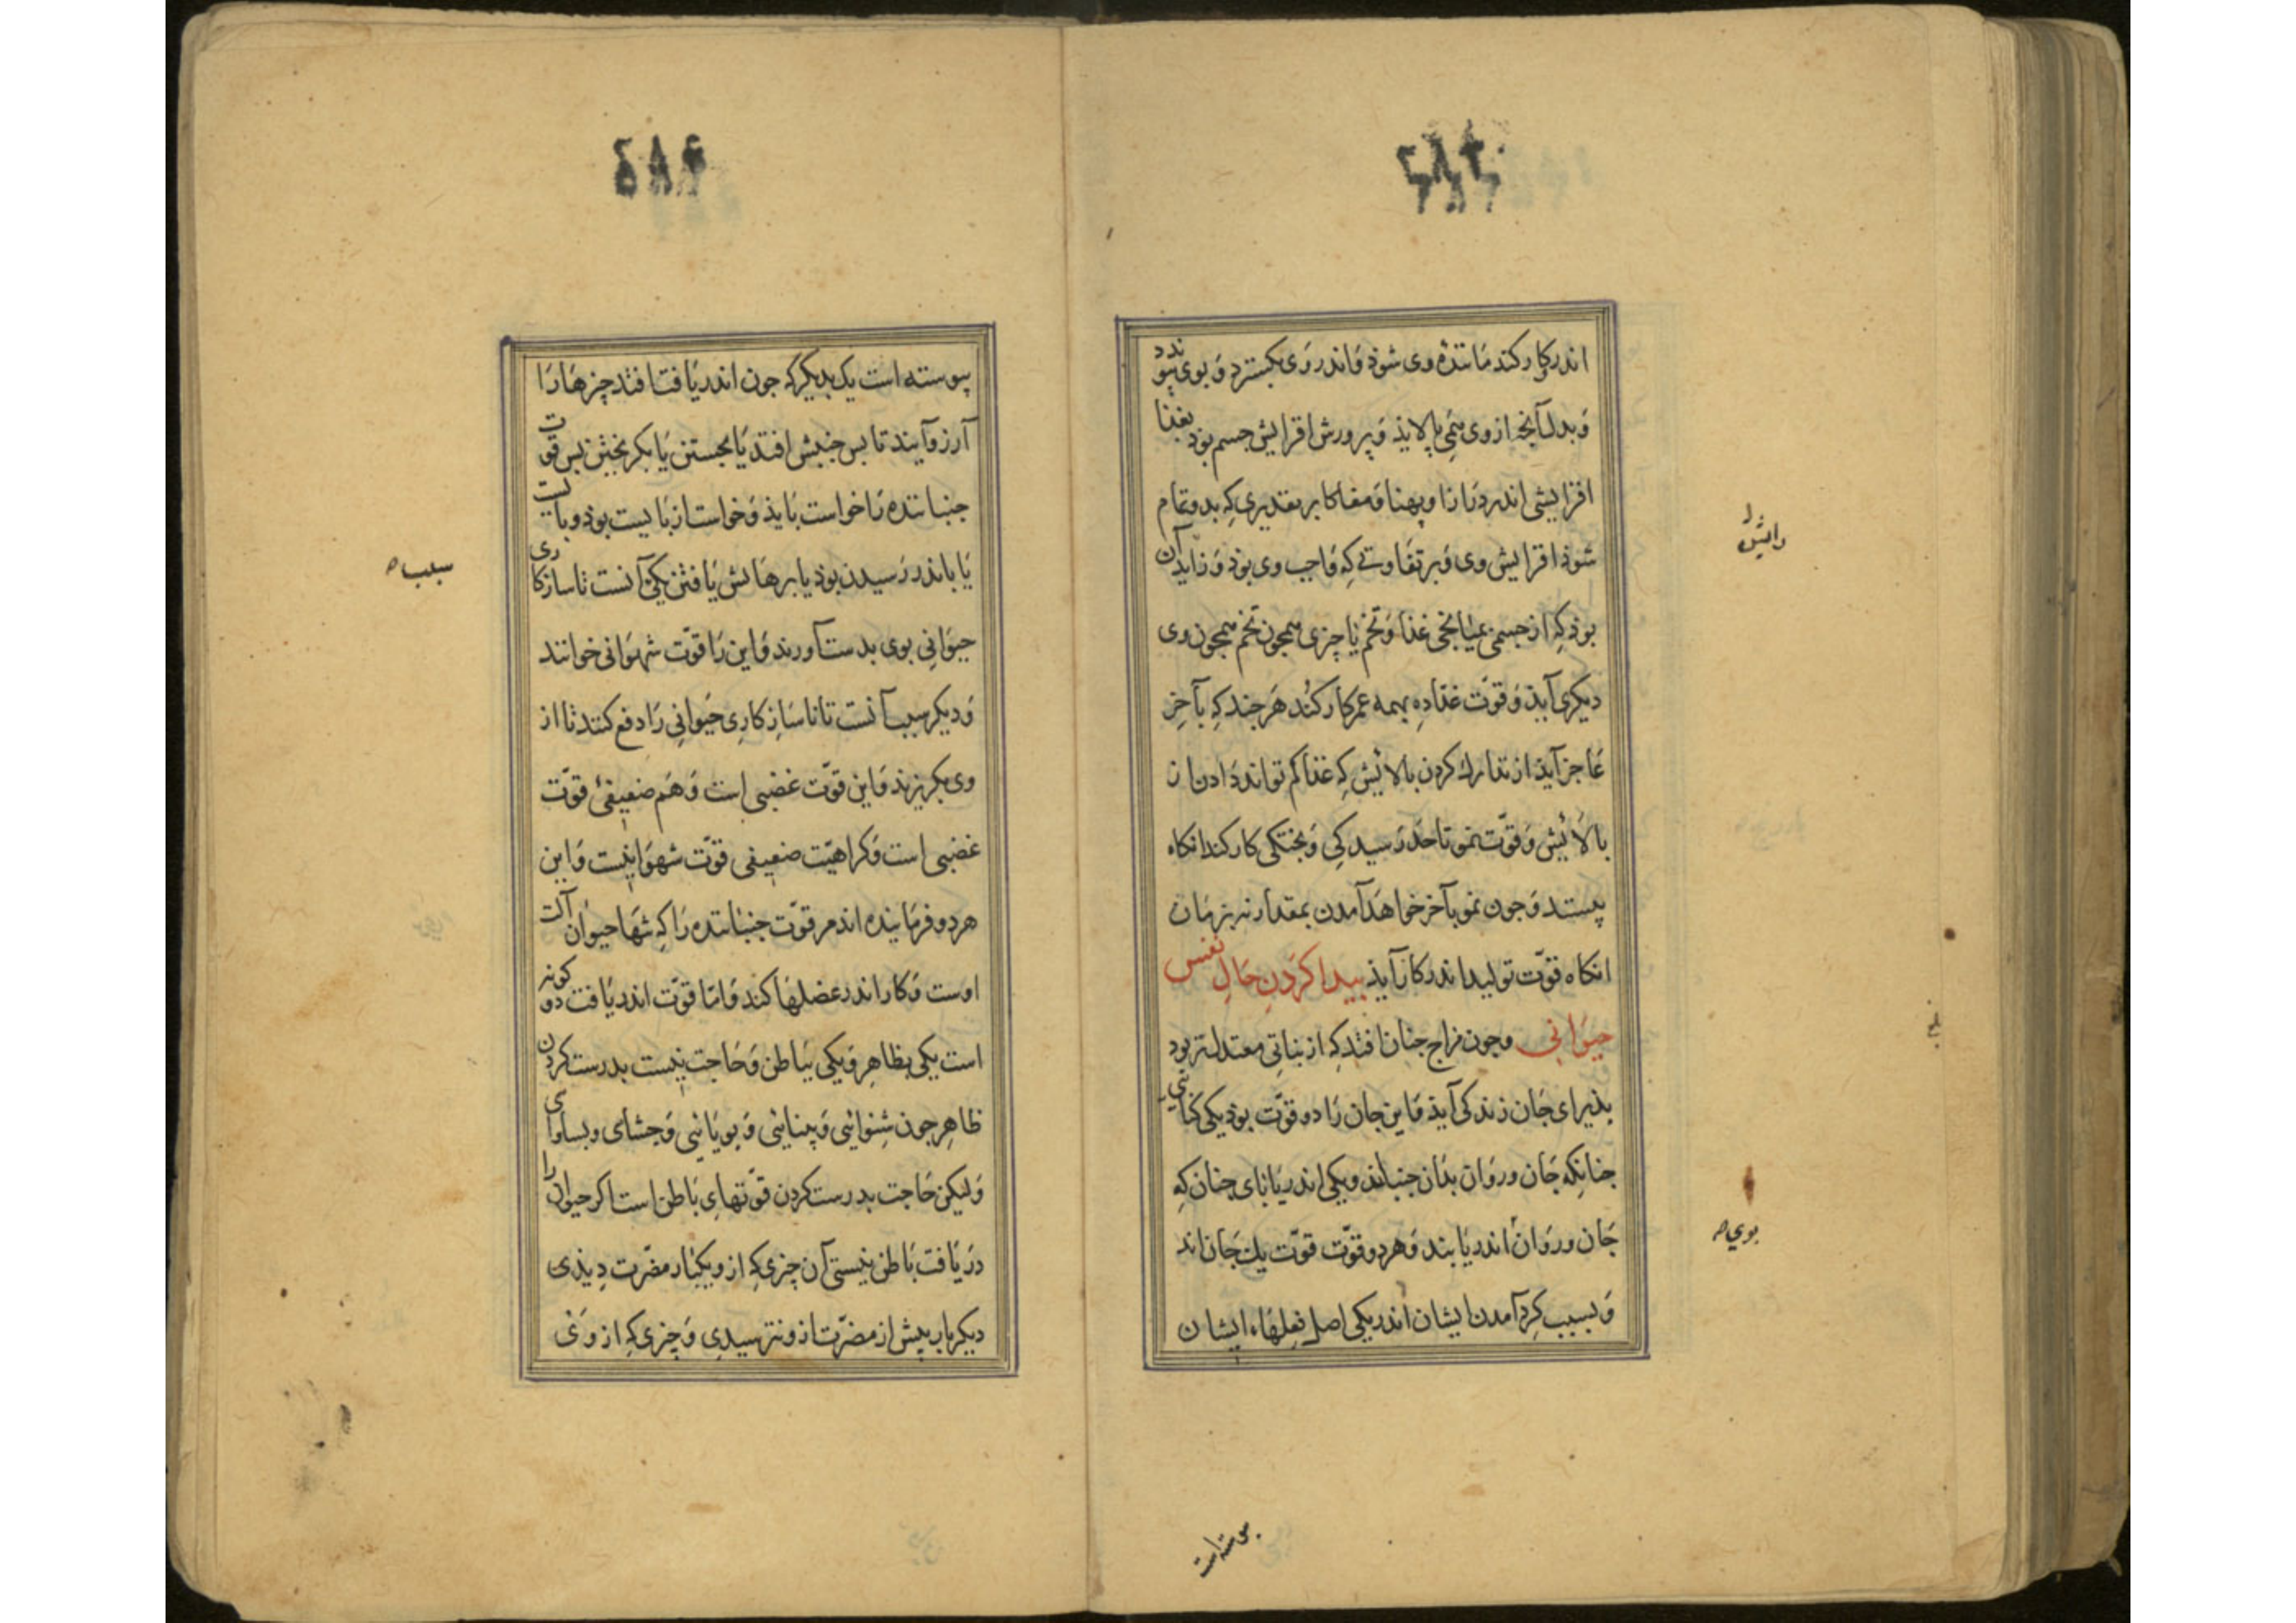 اندرو کار کند ماننده وی شوذ و اندر وی بکسترد و بوی پیوندد
و بدل آنچه از وی همی بالایذ و پرورش افزایش جسم بوذ بغذا
افزایشی اندر درازا و پهنا و مغاکا بر تقدیری که بدو تمام
شوذ افزایش وی و بر تفاوتی که واجب وی بوذ و زایدن
بوذ که از جسمی بمیانجی غذا و تخم یا چیزی همجون تخم همجون وی
دیکری آیذ و قوّت غذاده بهمه عمر کار کند هر جند که بآخر
عاجز آیذ از تدارك کردن بالائیش که غذا کم تواند دادن از
بالائیش و قوّت نمو تا حد رسیدکی و پختکی کار کند انکاه
بیستد و جون نمو بآخر خواهد آمدن بمقدار نه بزمان
انکاه قوّت تولید اندر کار آیذ پیدا کردن حال نفس
حیوانی وجون مزاج جنان افتد که از نباتی معتدل‌تر بود
پذیرای جان زندکی آیذ و این جان را دو قوّت بوذ یکی کنائی
جنانکه جان و روان بذان جنباند و یکی اندر یابای جنان که
جان و روان اندر یابند و هر دو قوّت قوّت یك جان اند
و بسبب کرد آمدن ایشان اندر یکی اصل فعلهاء ایشان
بوی
پیوسته است
پیوسته است یک بدیکر که جون اندر یافت افتد چیزها را
آرزو آیند تا بس جنبش افتد یا بجستن یا بکریختن بس قوّت
جنباننده را خواست بایذ و خواست از بایست بوذ و بایست
یا باندر رسیدن بوذ یا برهایش یافتن یکی آنست تا سازکاری
حیوانی بوی بدست آورند و این را قوّت شهوانی خوانند
و دیکر سبب آنست تا ناسازکاری حیوانی را دفع کنند تا از
وی بکریزند و این قوّت غضبی است و هم ضعیفئ قوّت
غضبی است و کراهیّت ضعیفی قوّت شهوانیست و این
هر دو فرماینده اند مر قوّت جنباننده را که تنها حیوان آلت
اوست و کار اندر عضلها کند و امّا قوّت اندر یافت دو کونه
است یکی بظاهر و یکی بباطن و حاجت نیست بدرست کردن
ظاهر جون شنوائی و بینائی و بویائی و جشای و بساوای
ولیکن حاجت بدرست کردن قوّتهای باطن است اکر حیوان را
دریافت باطن نیستی آن چیزی که ازو یکبار مضرّت دیذی
دیکر بار بیش از مضرّت ازو نترسیدی و چیزی که از وی
سبب